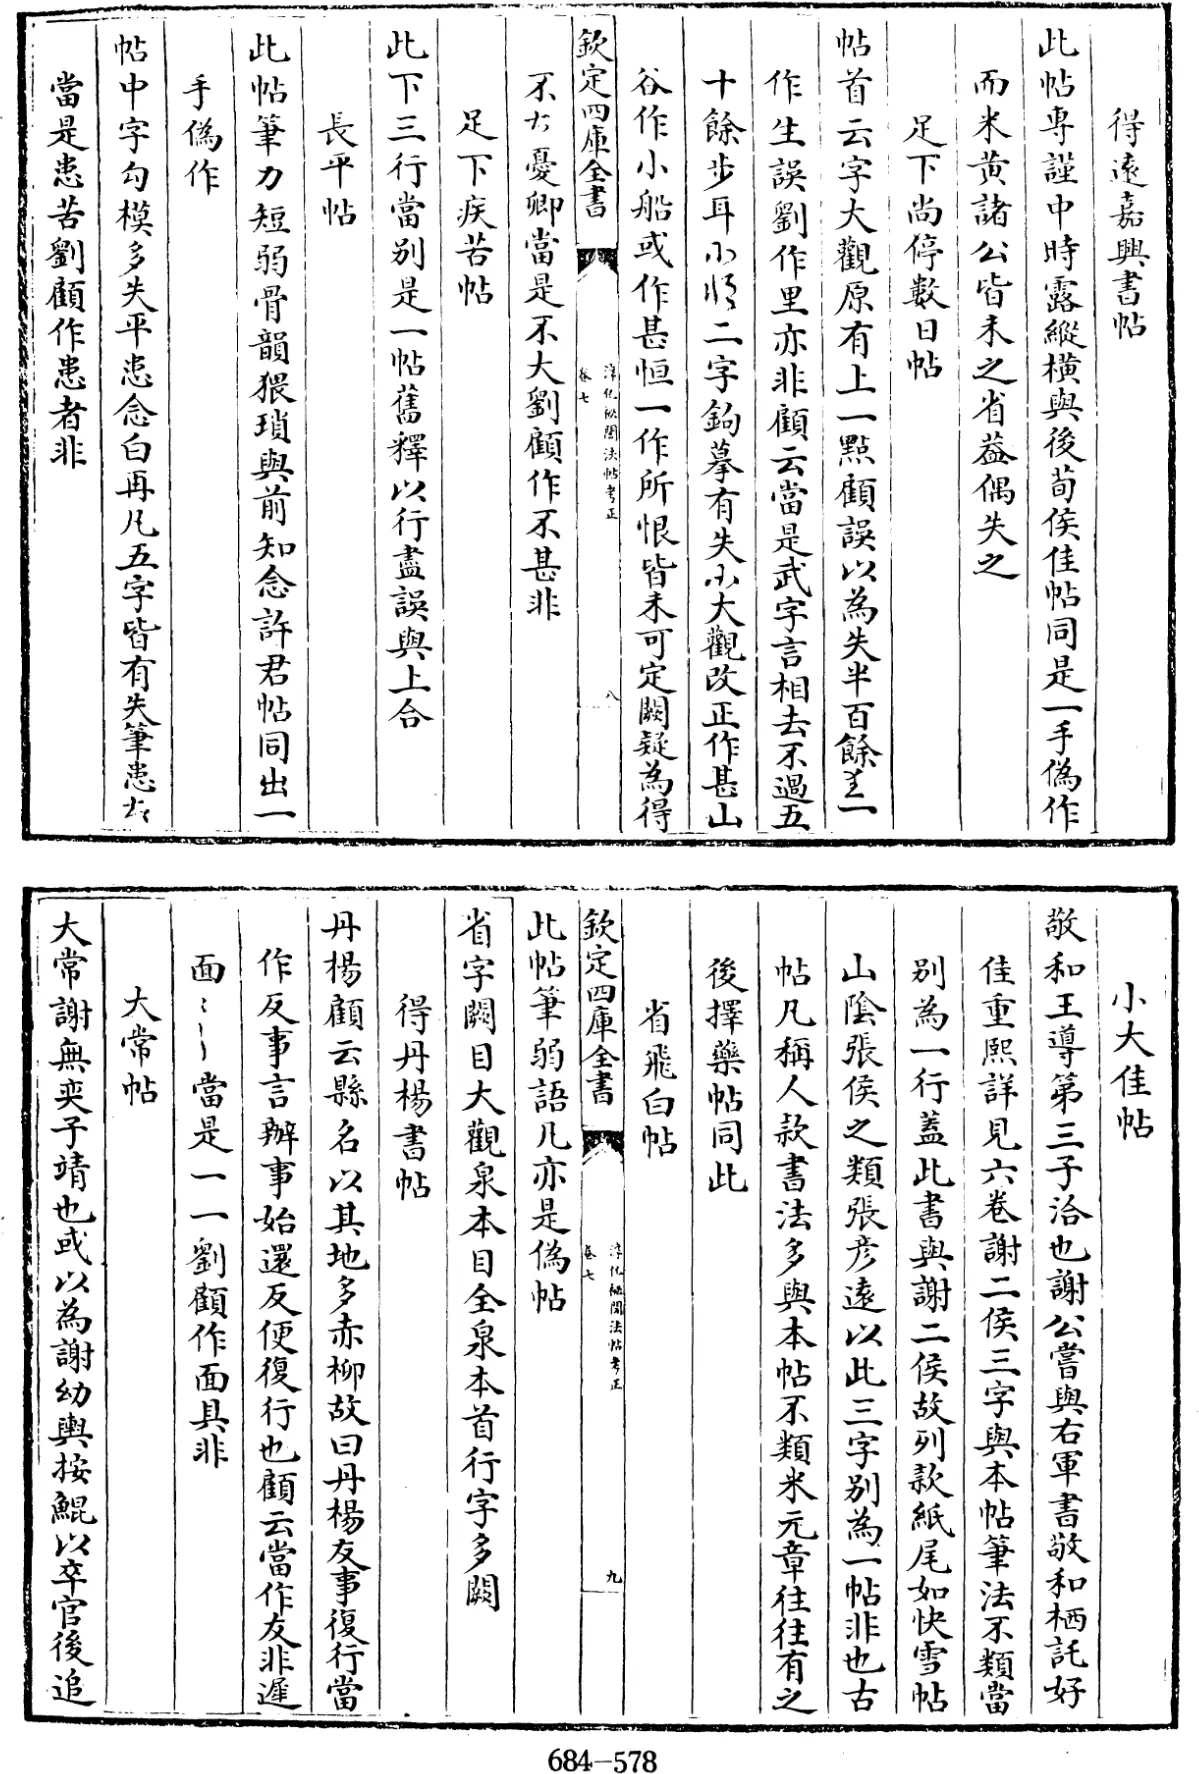 得遠嘉興書帖
此帖專謹中時露縱橫與後荀侯佳帖同是一手偽作
而米黄諸公皆未之省葢偶失之
足下尚停數日帖
帖首云字大觀原有上一點顧誤以為失半百餘一
作生誤劉作里亦非顧云當是武字言相去不過五
十餘步耳二字鈎摹有失大觀改正作甚山
谷作小船或作甚恒一作所恨皆未可定闕疑為得
欽定四庫全書
淳化祕閣法帖考正
卷七
八
不憂卿當是不大劉顧作不甚非
足下疾苦帖
此下三行當别是一帖舊釋以行盡誤與上合
長平帖
此帖筆力短弱骨韻猥瑣與前知念許君帖同出一
手偽作
帖中字勾模多失平患念白再凡五字皆有失筆患
當是患苦劉顧作患者非
小大佳帖
敬和王導第三子洽也謝公嘗與右軍書敬和栖託好
佳重熙詳見六卷謝二侯三字與本帖筆法不類當
别為一行蓋此書與謝二侯故列款紙尾如快雪帖
山陰張侯之類張彦遠以此三字别為一帖非也古
帖凡稱人款書法多與本帖不類米元章往往有之
後擇藥帖同此
省飛白帖
欽定四庫全書
淳化祕閣法帖考正
卷七
九
此帖筆弱語凡亦是偽帖
省字闕目大觀泉本目全泉本首行字多闕
得丹楊書帖
丹楊顧云縣名以其地多赤柳故曰丹楊友事復行當
作反事言辦事始還反便復行也顧云當作友非遲
面當是一一劉顧作面具非
大常帖
大常謝無奕子靖也或以為謝幼輿按鯤以卒官後追
684—578